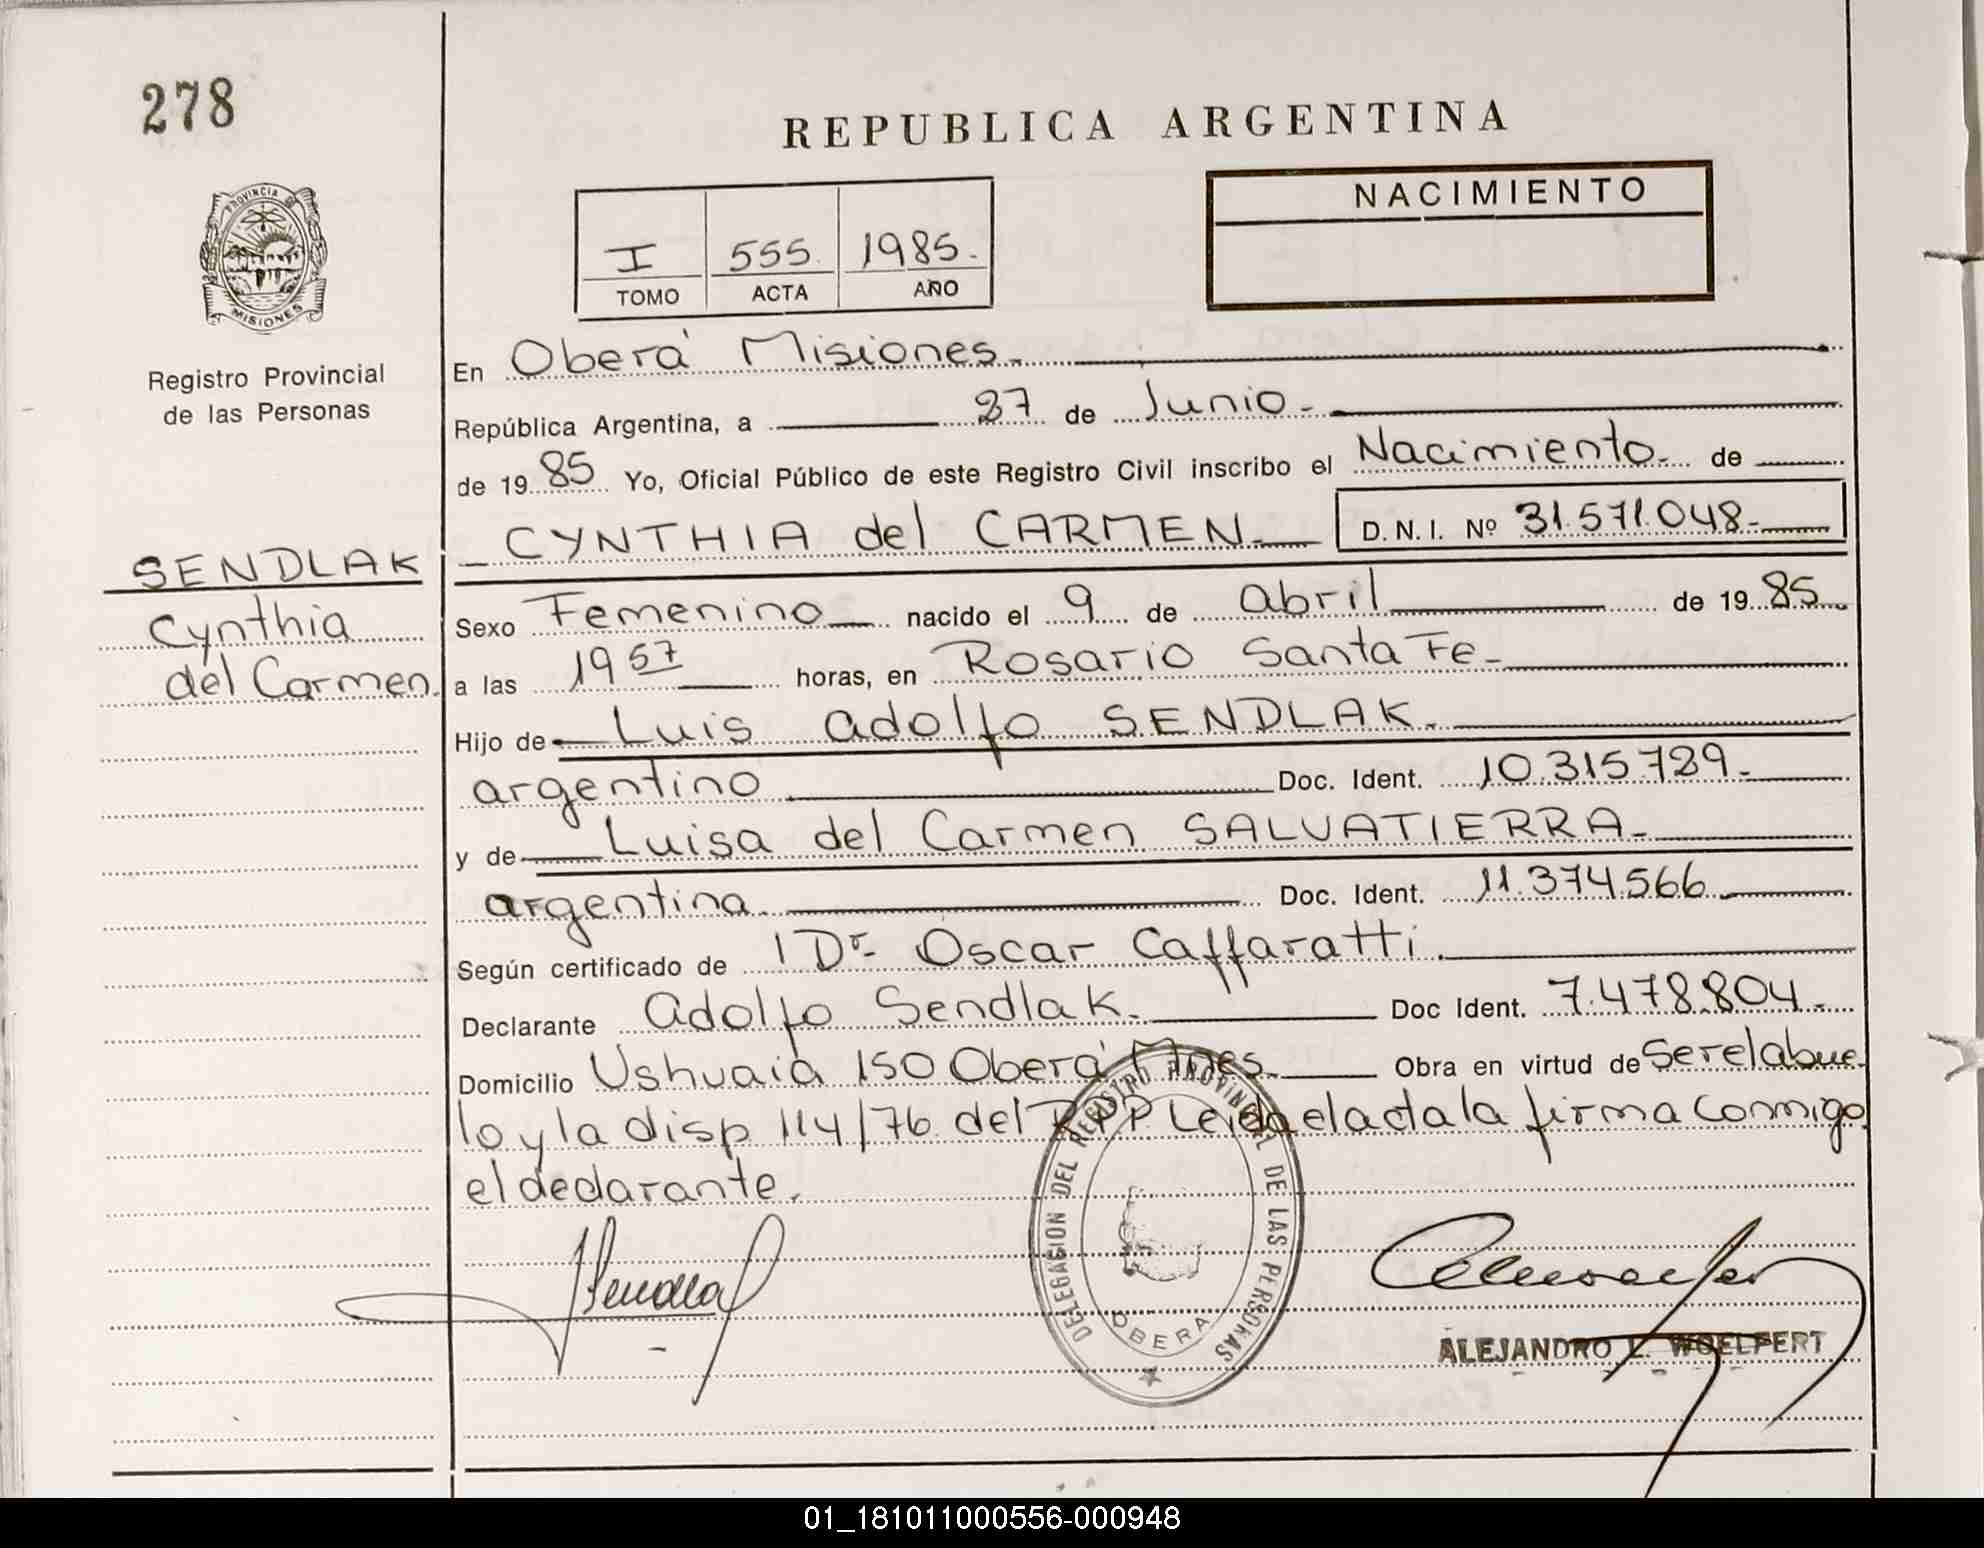 278
REPUBLICA ARGENTINA
NACIMIENTO
I 555. 1985.
TOMO ACTA AÑO
PROVINCIA
MISIONES
Registro Provincial
de las Personas
En Oberá Misiones.
República Argentina, a 27 de Junio.
de 1985 Yo, Oficial Público de este Registro Civil inscribo el Nacimiento. de
CYNTHIA del CARMEN. D.N.I. Nº 31.571.048.
SENDLAK
Cynthia
del Carmen.
Sexo Femenino nacido el 9 de abril de 1985.
a las 1957 horas, en Rosario Santa Fe
Hijo de Luis adolfo SENDLAK.
argentino Doc. Ident. 10.315.789.
y de Luisa del Carmen SALVATIERRA.
argentina. Doc. Ident. 11.374.566
Según certificado de Dr. Oscar Caffaratti.
Declarante adolfo Sendlak. Doc Ident. 7.478.804.
Domicilio Ushuaia 150 Oberá Mnes. Obra en virtud de Serelabue
lo y la disp 114/76 del RPP Leida el acta la firma conmigo
el declarante.
Sendlak
DELEGACION DEL REGISTRO PROVINCIAL DE LAS PERSONAS
OBERA
ALEJANDRO L. WOELFERT
01_181011000556-000948